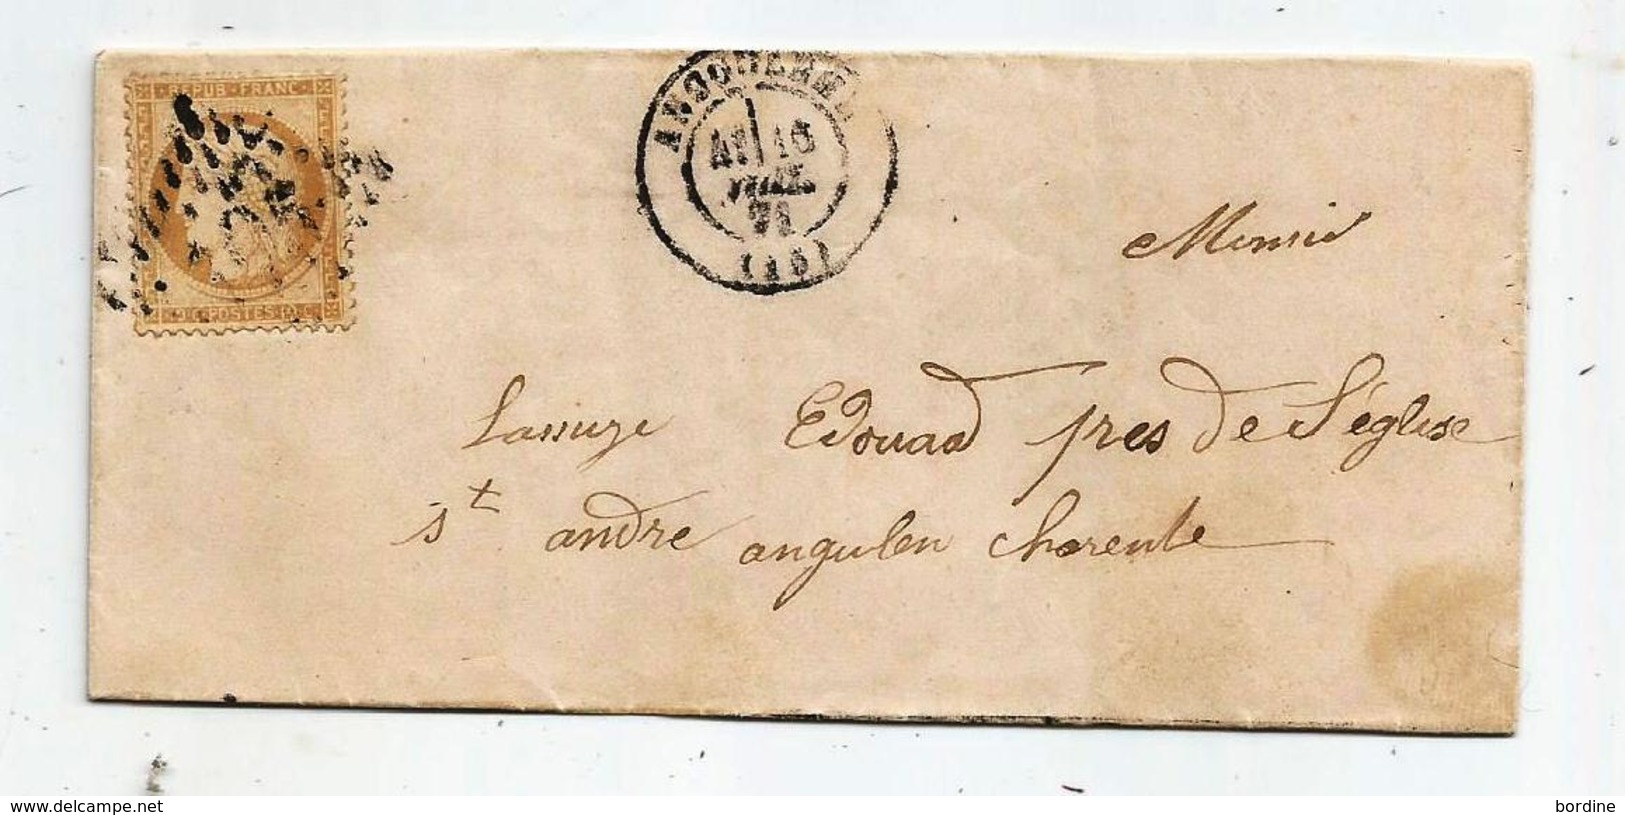 REPUB · FRANC
POSTES
ANGOULEME
16
JUIL.
71
(15)
Monsie
Edouard pres de l'église
st andre angulen charente
www.delcampe.net
bordine